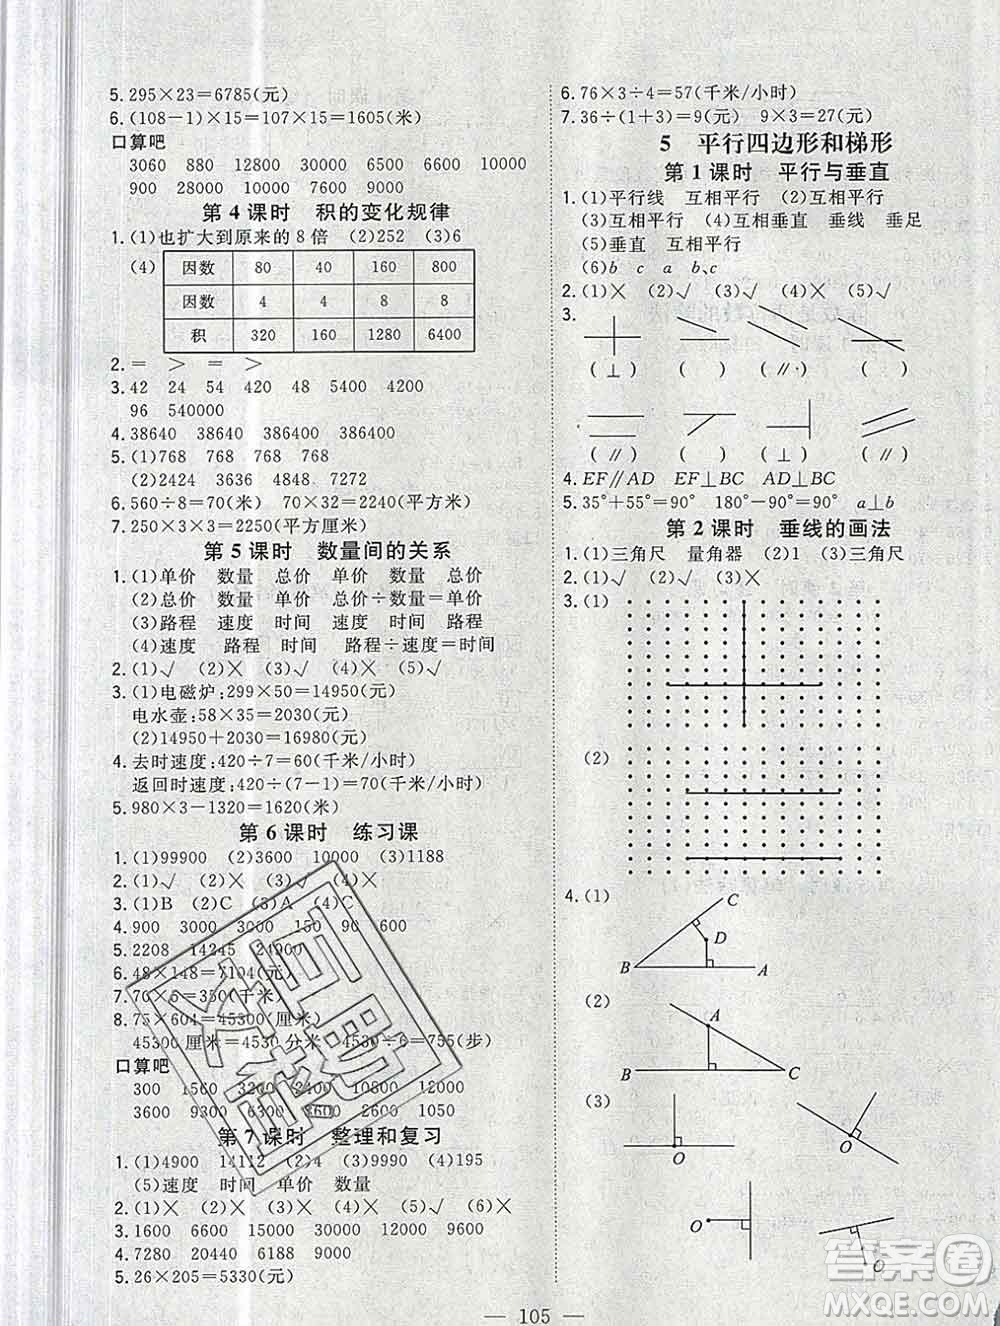 5. 295×23=6785(元)
6. (108-1)×15=107×15=1605(米)
口算吧
3060 880 12800 9300 3600 4800
900 28000 7000 14000 9000
第 4 课时 积的变化规律
1. (1)也扩大到原来的 8 倍 (2)252 (3)6
(4) 因数 80 40 160 800
因数 4 4 8 8
积 320 160 1280 6400
2. = > = >
3. 42 24 54 420 48 5400 4200
96 540000
4. 38640 38640 386400 386400
5. (1)768 768 768 768
(2)2424 3636 4848 7272
6. 560÷8=70(米) 70×32=2240(平方米)
7. 250×3×3=2250(平方厘米)
第 5 课时 数量间的关系
1. (1)单价 数量 总价 单价 数量 总价
(2)总价 数量 单价 总价÷数量=单价
(3)路程 速度 时间 速度 时间 路程
(4)速度 路程 时间 路程÷速度=时间
2. (1)√ (2)× (3)√ (4)× (5)√
3. (1)电磁炉:299×50=14950(元)
电水壶:58×35=2030(元)
(2)14950+2030=16980(元)
4. 去时速度:420÷7=60(千米/小时)
返回时速度:420÷(7-1)=70(千米/小时)
5. 980×3-1320=1620(米)
第 6 课时 练习课
1. (1)99900 (2)3600 10000 (3)1188
2. (1)√ (2)× (3)√ (4)×
3. (1)B (2)C (3)A (4)C
4. 900 3000 3000 150 90 600
5. 2208 14448 24900
6. 48×148=7104(元)
7. 70×5=350(千米)
8. 75×604=45300(厘米)
45300厘米=4530分米 4530÷6=755(步)
口算吧
300 1560 3200 2000 8400 12000
3600 9300 6800 3600 2600 1050
第 7 课时 整理和复习
1. (1)4900 14112 (2)4 (3)9990 (4)195
(5)速度 时间 单价 数量
2. (1)× (2)× (3)√ (4)√ (5)× (6)×
3. 1600 6600 3200 9000 4400 4800
4. 7280 20440 6188 18000
5. 26×205=5330(元)
6. 76×3÷4=57(千米/小时)
7. 36÷(1+3)=9(元) 9×3=27(元)
5 平行四边形和梯形
第 1 课时 平行与垂直
1. (1)平行线 互相平行 (2)互相平行
(3)互相平行 (4)互相垂直 垂线 垂足
(5)垂直 互相平行
(6)b c a b、c
2. (1)× (2)√ (3)× (4)× (5)√
3.
( ⊥ ) ( ) ( ∥ ) ( )
( ∥ ) ( ) ( ⊥ ) ( ∥ )
4. EF∥AD EF⊥BC AD⊥BC
5. 35°+55°=90° 180°-90°=90° a⊥b
第 2 课时 垂线的画法
1. (1)三角尺 量角器 (2)1 (3)三角尺
2. (1)√ (2)√ (3)×
3. (1)
(2)
4. (1)
C
D
B A
(2)
A
B C
(3)
O O
O
O
答案圈
MXQE.COM
— 105 —